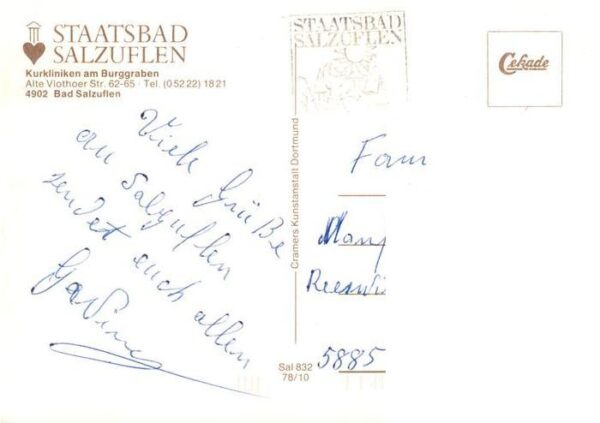 STAATSBAD
SALZUFLEN
Kurkliniken am Burggraben
Alte Vlothoer Str. 62-65 · Tel. (05222) 1821
4902 Bad Salzuflen
Viele Grüße
au Salzuflen
sendet euch allen
STAATSBAD
SALZUFLEN
Cramers Kunstanstalt Dortmund
Sal 832
78/10
Cekade
Fam
5885